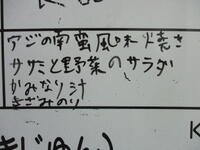 アジの南蛮風味焼き
ササミと野菜のサラダ
かみなり汁
きざみのり